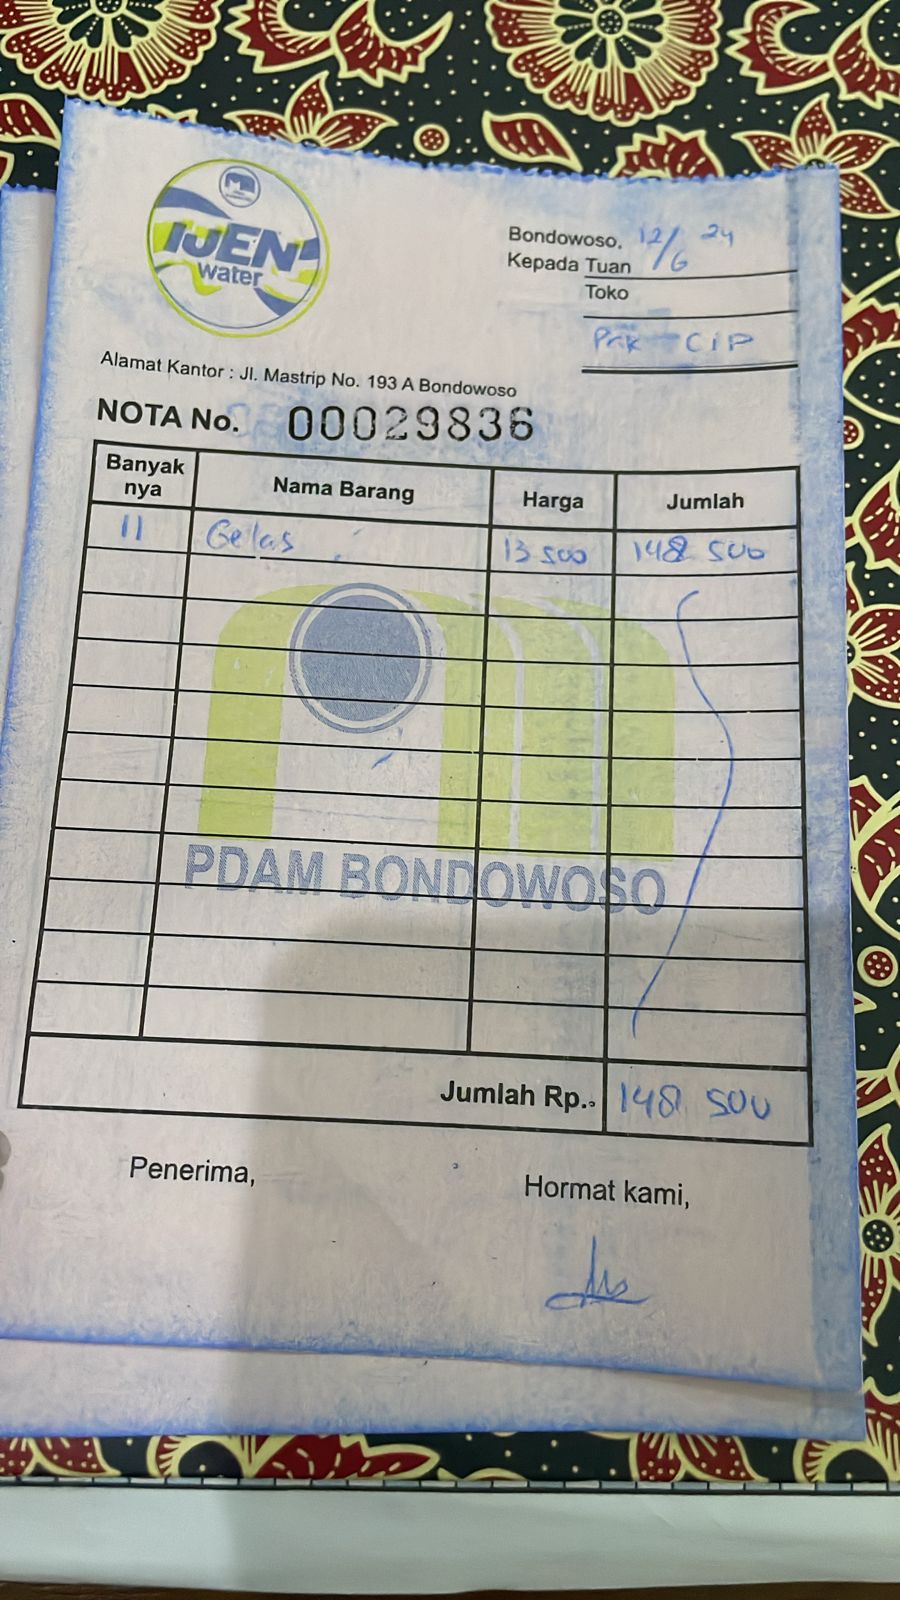 IJEN
water
Bondowoso, 12/6 24
Kepada Tuan
Toko
Pak CIP
Alamat Kantor : Jl. Mastrip No. 193 A Bondowoso
NOTA No. 00029836
Banyak nya Nama Barang Harga Jumlah
11 Gelas 13 500 148 500
PDAM BONDOWOSO
Jumlah Rp. 148 500
Penerima, Hormat kami,